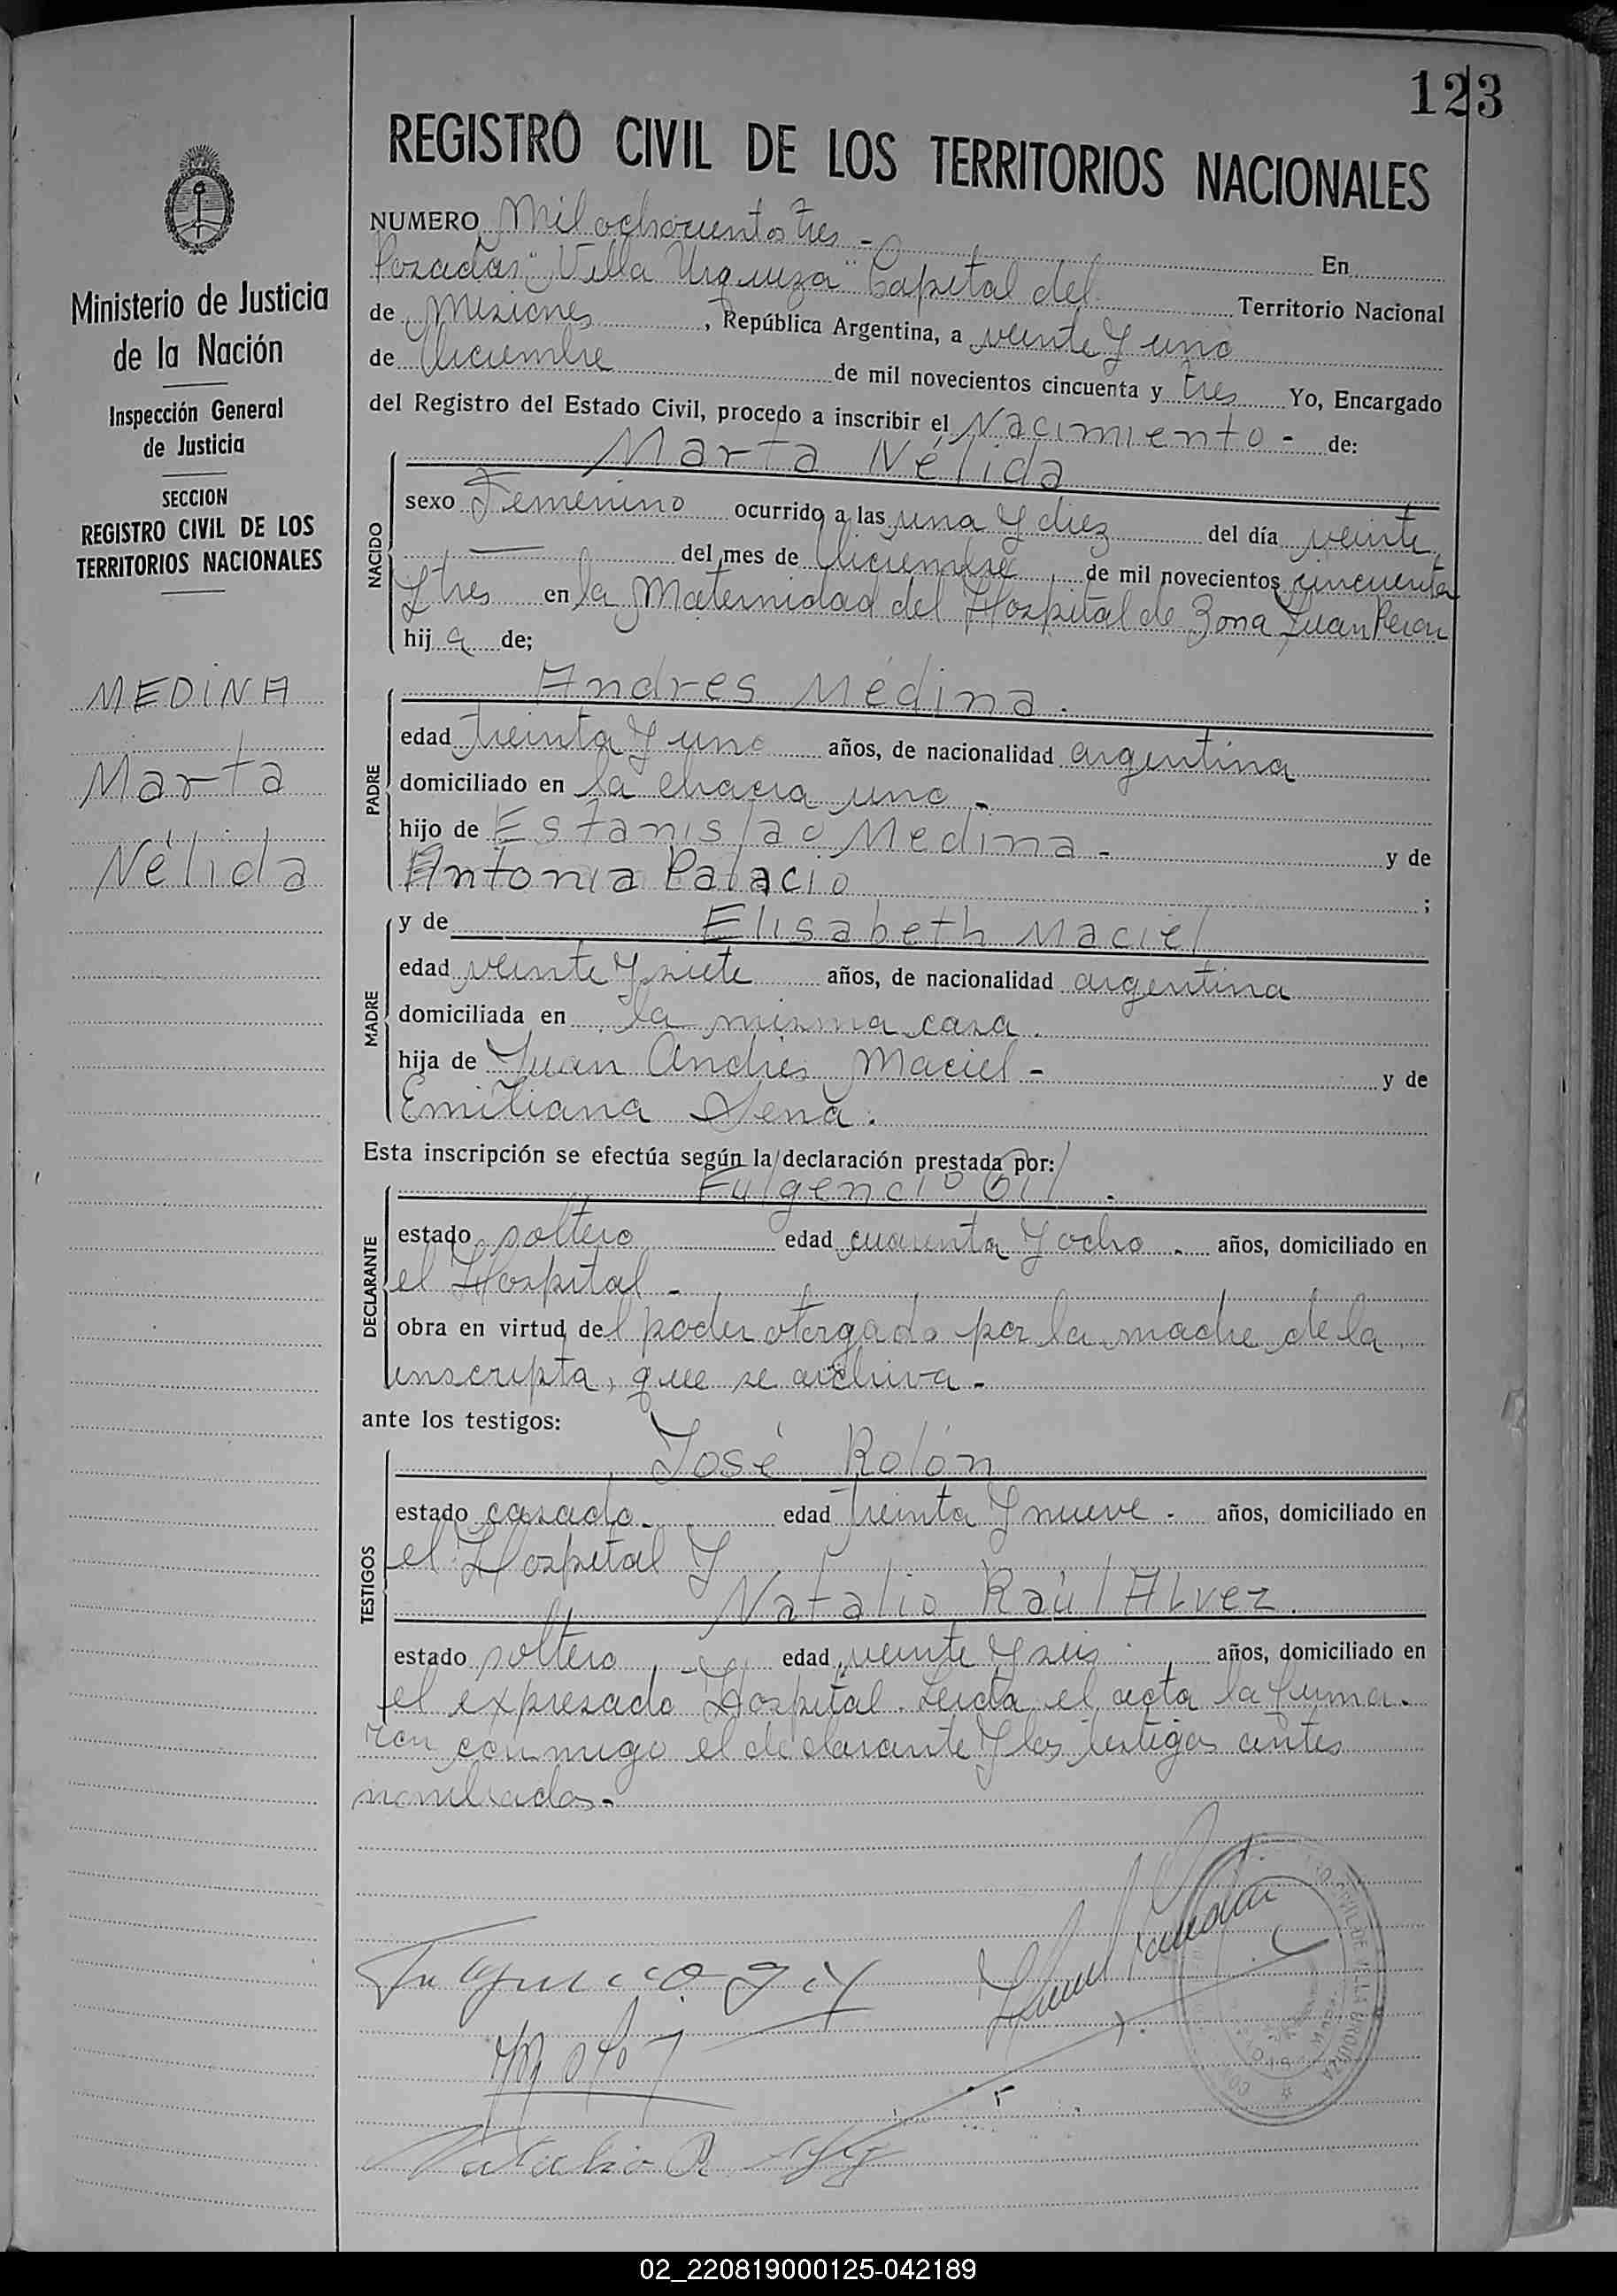 123
REGISTRO CIVIL DE LOS TERRITORIOS NACIONALES
Ministerio de Justicia
de la Nación
Inspección General
de Justicia
SECCION
REGISTRO CIVIL DE LOS
TERRITORIOS NACIONALES
MEDINA
Marta
Nélida
NUMERO Mil ochocientos tres - En
Posadas "Villa Urquiza" Capital del Territorio Nacional
de Misiones, República Argentina, a veinte y uno
de Diciembre de mil novecientos cincuenta y tres Yo, Encargado
del Registro del Estado Civil, procedo a inscribir el Nacimiento - de:
Marta Nélida
NACIDO
sexo Femenino ocurrido a las una y diez del día veinte
— del mes de Diciembre de mil novecientos cincuenta
y tres en la Maternidad del Hospital de Zona Juan Peron
hija de;
Andres Médina.
PADRE
edad treinta y uno años, de nacionalidad argentina
domiciliado en la chacra uno -
hijo de Estanislao Medina - y de
Antonia Palacio ;
y de Elisabeth Maciel
MADRE
edad veinte y siete años, de nacionalidad argentina
domiciliada en la misma casa.
hija de Juan Andrés Maciel - y de
Emiliana Sena.
Esta inscripción se efectúa según la declaración prestada por:
Fulgencio Gil.
DECLARANTE
estado soltero edad cuarenta y ocho. años, domiciliado en
el Hospital -
obra en virtud del poder otorgado por la madre de la
inscripta, que se archiva -
ante los testigos:
José Rolón
TESTIGOS
estado casado - edad treinta y nueve - años, domiciliado en
el Hospital y
Natalio Raúl ALvez.
estado soltero, - edad veinte y seis. años, domiciliado en
el expresado Hospital. Leida el acta la firma-
ron conmigo el declarante y los testigos antes
nombrados -
Fulgencio Gil
Natalio R
CIVIL DE VILLA URQUIZA
02_220819000125-042189